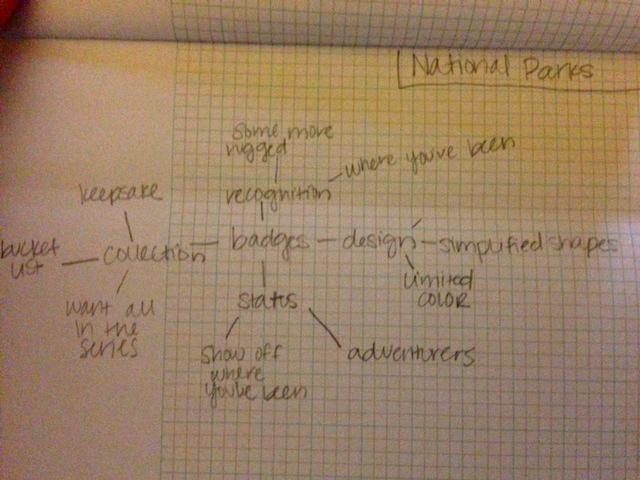 National Parks
some more
rugged
where you've been
recognition
keepsake
bucket
list
collection
badges
design
simplified shapes
limited
COLOR
want all
in the
series
status
show off
where
you've been
adventurers